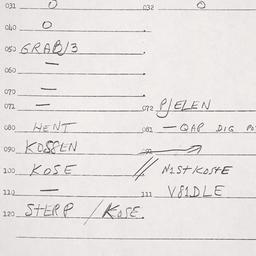 031 0
032 0
040 0
050 GRAB/3
060 —
070 —
071 —
072 PJELEN
080 WENT
081 — QAP DIG PO
090 KOSSEN
100 KOSE // N1STKOSTE
110 —
111 V81DLE
120 STEPP / KOSE.